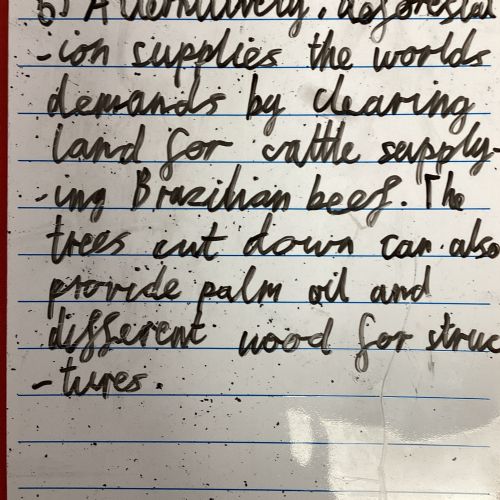 b) Alternatively, deforestat
-ion supplies the worlds
demands by clearing
land for cattle supply-
-ing Brazilian beef. The
trees cut down can also
provide palm oil and
different wood for struc
-tures.